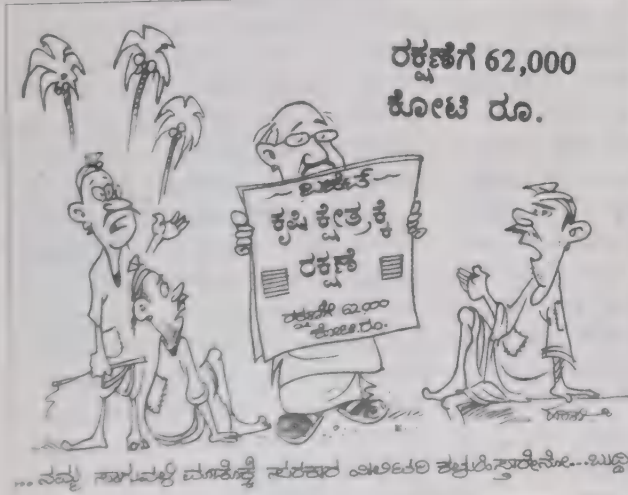 ರಕ್ಷಣೆಗೆ 62,000
ಕೋಟಿ ರೂ.
ಬಜೆಟ್
ಕೃಷಿ ಕ್ಷೇತ್ರಕ್ಕೆ
ರಕ್ಷಣೆ
ರಕ್ಷಣೆಗೆ ೬೨,೦೦೦
ಕೋಟಿ.ರೂ.
... ನಮ್ಮ ಸಾಗುವಳಿ ಮಾಡೋಕ್ಕೆ ಸರಕಾರ ಮಿಲಿಟರಿ ಕಳುಹಿಸ್ತಾರೇನೋ...ಬುದ್ಧಿ